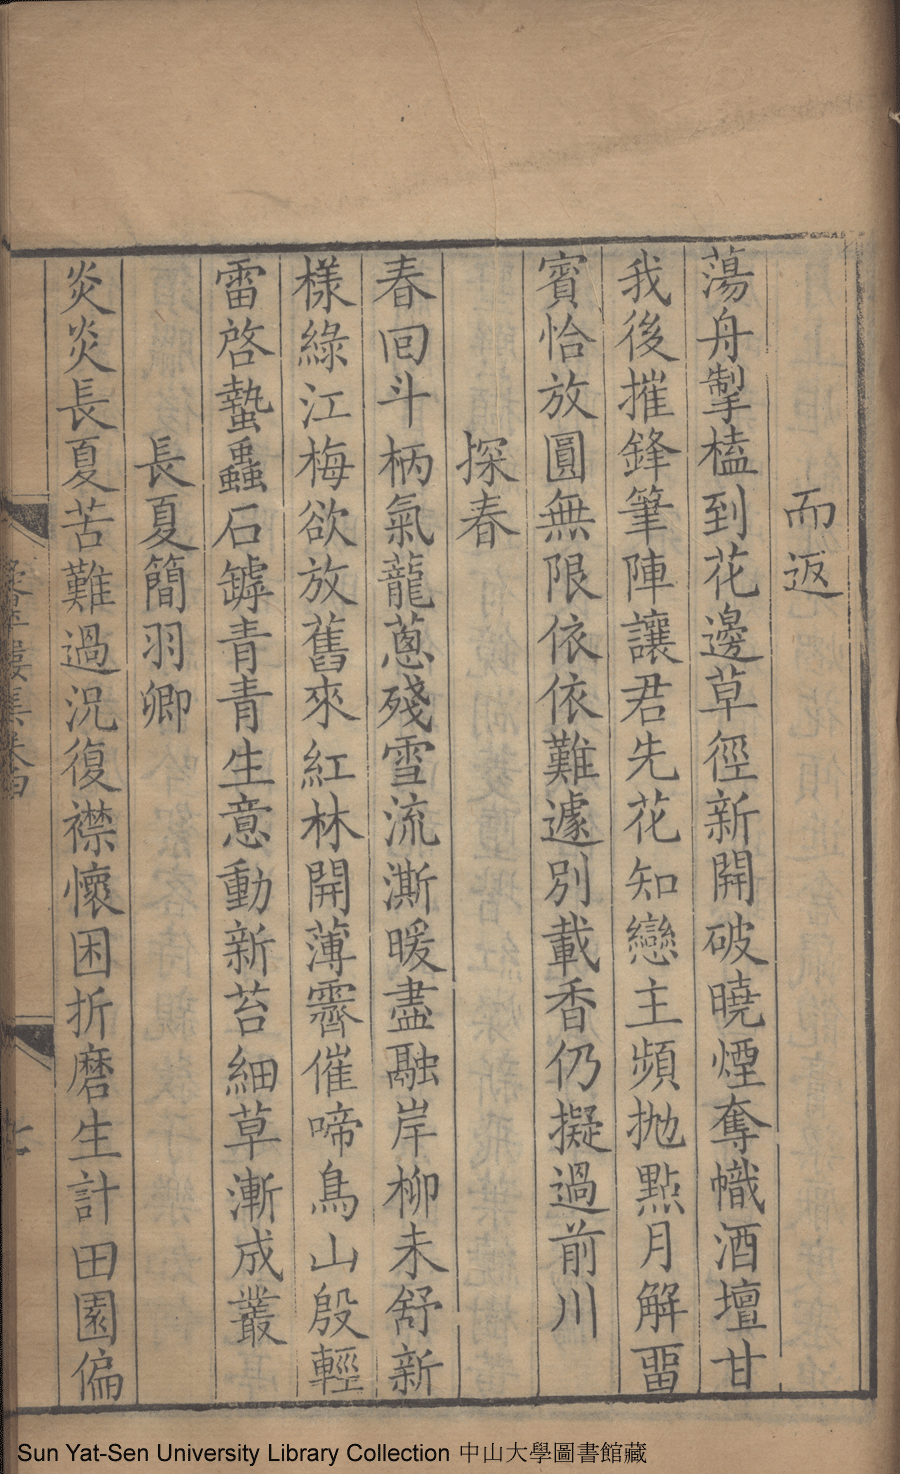 而返
蕩舟掣榼到花邊草徑新開破曉煙奪幟酒壇甘
我後摧鋒筆陣讓君先花知戀主頻拋點月解畱
賓恰放圓無限依依難遽別載香仍擬過前川
探春
春回斗柄氣蘢蔥殘雪流澌暖盡融岸柳未舒新
樣綠江梅欲放舊來紅林開薄霽催啼鳥山殷輕
雷啓蟄蟲石罅青青生意動新苔細草漸成叢
長夏簡羽卿
炎炎長夏苦難過況復襟懷困折磨生計田園偏
樓集卷四
七
Sun Yat-Sen University Library Collection 中山大學圖書館藏